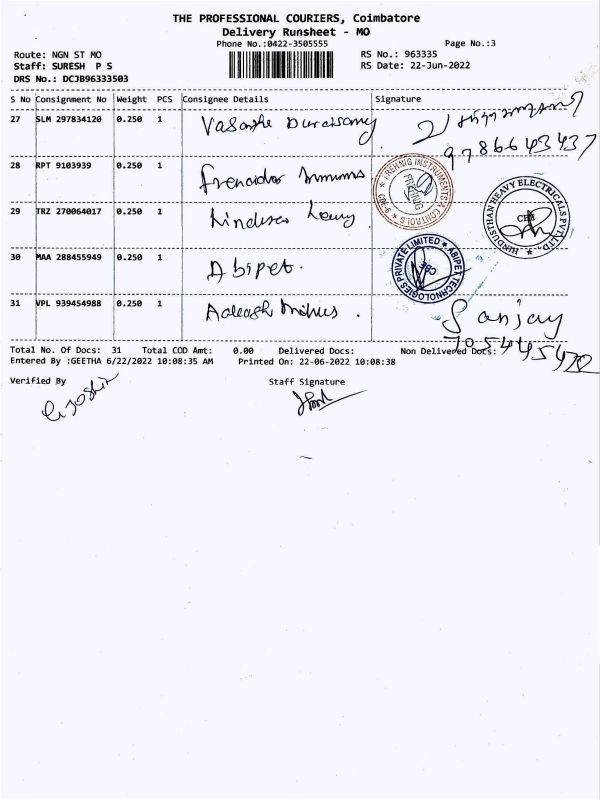 THE PROFESSIONAL COURIERS, Coimbatore
Delivery Runsheet - MO
Phone No.:0422-3505555 Page No.:3
Route: NGN ST MO RS No.: 963335
Staff: SURESH P S RS Date: 22-Jun-2022
DRS No.: DCJB96333503
S No Consignment No Weight PCS Consignee Details Signature
27 SLM 297834120 0.250 1 Vasantha
9786643437
28 RPT 9103939 0.250 1
TREHNIG INSTRUMENTS & CONTROLS
29 TRZ 270064017 0.250 1
HINDUSTHAN HEAVY ELECTRICALS PVT. LTD.
30 MAA 288455949 0.250 1 Abipet.
ABIPEX TECHNOLOGIES PRIVATE LIMITED
CBE
31 VPL 939454988 0.250 1
Sanjay
Total No. Of Docs: 31 Total COD Amt: 0.00 Delivered Docs: Non Delivered Docs:
Entered By :GEETHA 6/22/2022 10:08:35 AM Printed On: 22-06-2022 10:08:38
Verified By Staff Signature